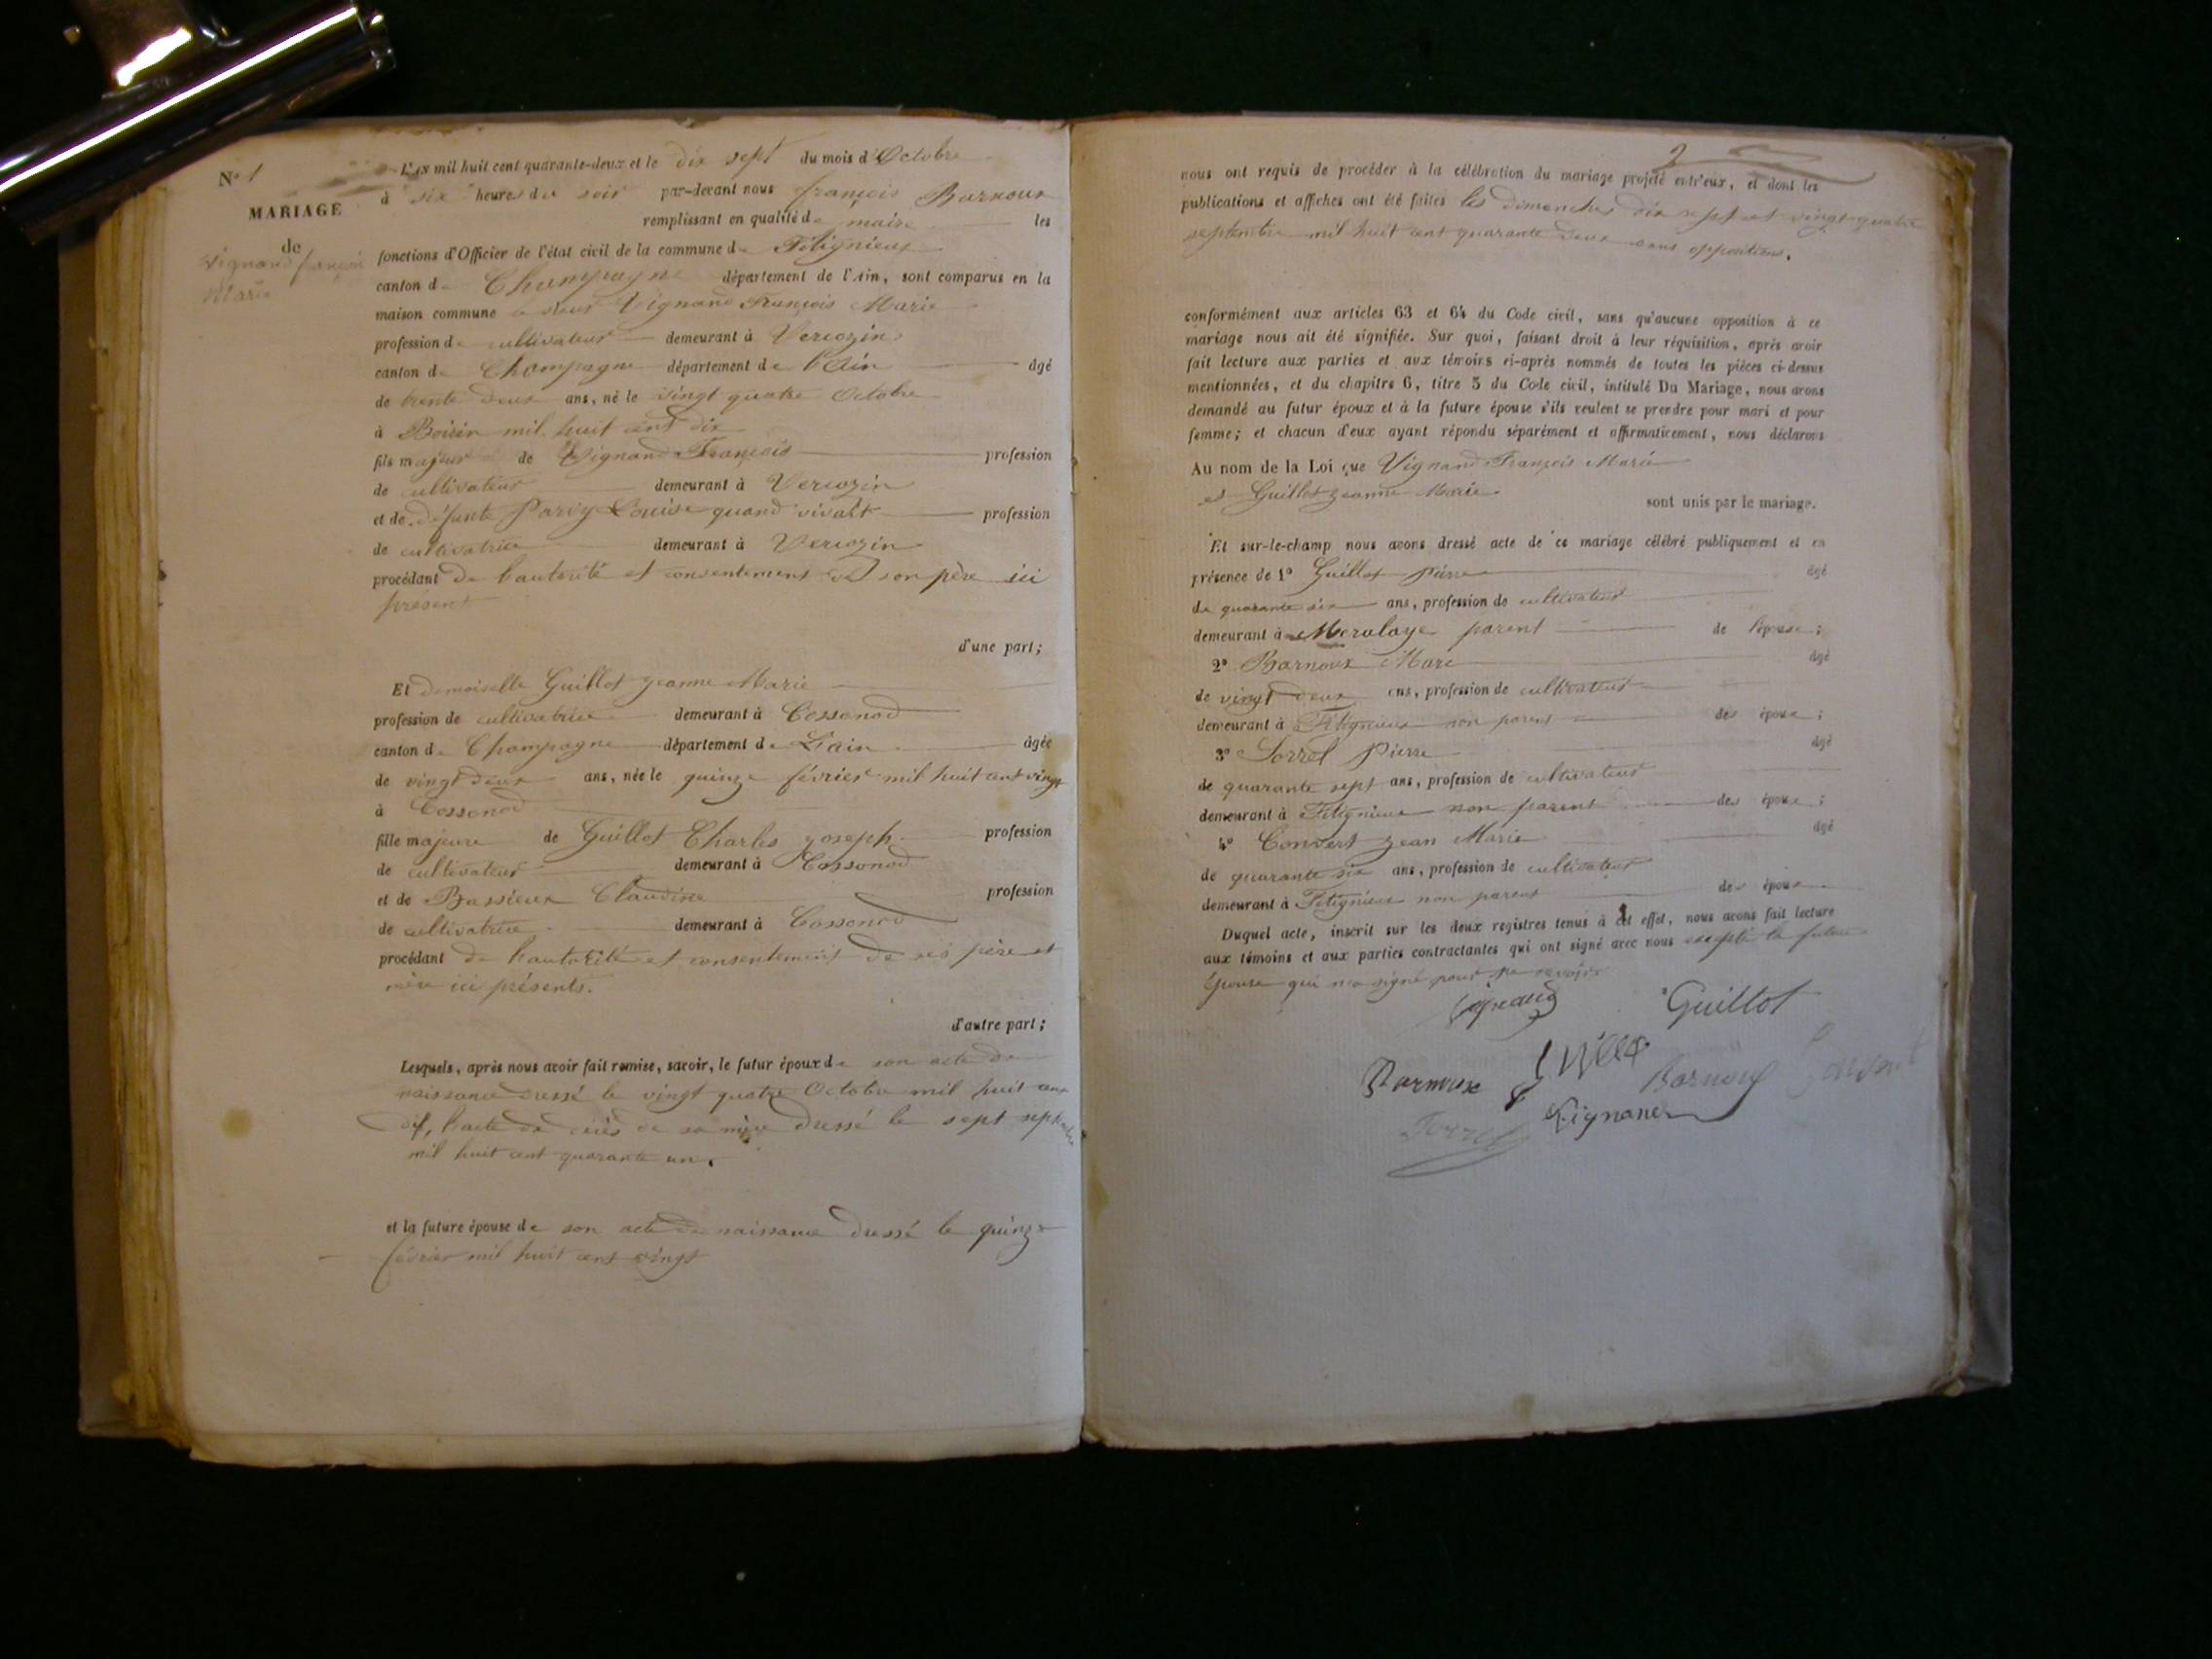 N° 1
MARIAGE
de
Vignand françois
Marie
L'an mil huit cent quarante-deux et le dix sept du mois d'Octobre
à six heures du soir par-devant nous françois Barnoux
remplissant en qualité de maire les
fonctions d'Officier de l'état civil de la commune de Fitignieux
canton de Champagne département de l'Ain, sont comparus en la
maison commune le sieur Vignand François Marie
profession de cultivateur demeurant à Vercozin
canton de Champagne département de l'Ain âgé
de trente deux ans, né le vingt quatre Octobre
à Boirin mil huit cent dix
fils majeur de Vignand François profession
de cultivateur demeurant à Vercozin
et de défunte Parvy Louise quand vivait profession
de cultivatrice demeurant à Vercozin
procédant de l'autorité et consentement de son père ici
présent
d'une part;
Et demoiselle Guillot jeanne Marie
profession de cultivatrice demeurant à Cossonod
canton de Champagne département de L'ain âgée
de vingt deux ans, née le quinze février mil huit cent vingt
à Cossonod
fille majeure de Guillot Charles joseph profession
de cultivateur demeurant à Cossonod
et de Bassieux Claudine profession
de cultivatrice demeurant à Cossonod
procédant de l'autorité et consentement de ses père et
mère ici présents.
d'autre part;
Lesquels, après nous avoir fait remise, savoir, le futur époux de son acte de
naissance dressé le vingt quatre Octobre mil huit cent
dix, l'acte de décès de sa mère dressé le sept septembre
mil huit cent quarante un.
et la future épouse de son acte de naissance dressé le quinze
février mil huit cent vingt
2
nous ont requis de procéder à la célébration du mariage projeté entr'eux, et dont les
publications et affiches ont été faites les dimanches dix sept et vingt quatre
septembre mil huit cent quarante deux sans oppositions.
conformément aux articles 63 et 64 du Code civil, sans qu'aucune opposition à ce
mariage nous ait été signifiée. Sur quoi, faisant droit à leur réquisition, après avoir
fait lecture aux parties et aux témoins ci-après nommés de toutes les pièces ci-dessus
mentionnées, et du chapitre 6, titre 5 du Code civil, intitulé Du Mariage, nous avons
demandé au futur époux et à la future épouse s'ils veulent se prendre pour mari et pour
femme; et chacun d'eux ayant répondu séparément et affirmativement, nous déclarons
Au nom de la Loi que Vignand François Marie
et Guillot jeanne Marie
sont unis par le mariage.
Et sur-le-champ nous avons dressé acte de ce mariage célébré publiquement et en
présence de 1° Guillot pierre âgé
de quarante six ans, profession de cultivateur
demeurant à Meralaye parent de l'épouse;
2° Barnoux Marc âgé
de vingt deux ans, profession de cultivateur
demeurant à Fitignieux non parent des époux;
3° Sorrel Pierre âgé
de quarante sept ans, profession de cultivateur
demeurant à Fitignieux non parent des époux;
4° Convert jean Marie âgé
de quarante six ans, profession de cultivateur
demeurant à Fitignieux non parent des époux
Duquel acte, inscrit sur les deux registres tenus à cet effet, nous avons fait lecture
aux témoins et aux parties contractantes qui ont signé avec nous excepté la future
épouse qui n'a signé pour ne savoir
Guillot
Barnoux
Barnoux
Vignand